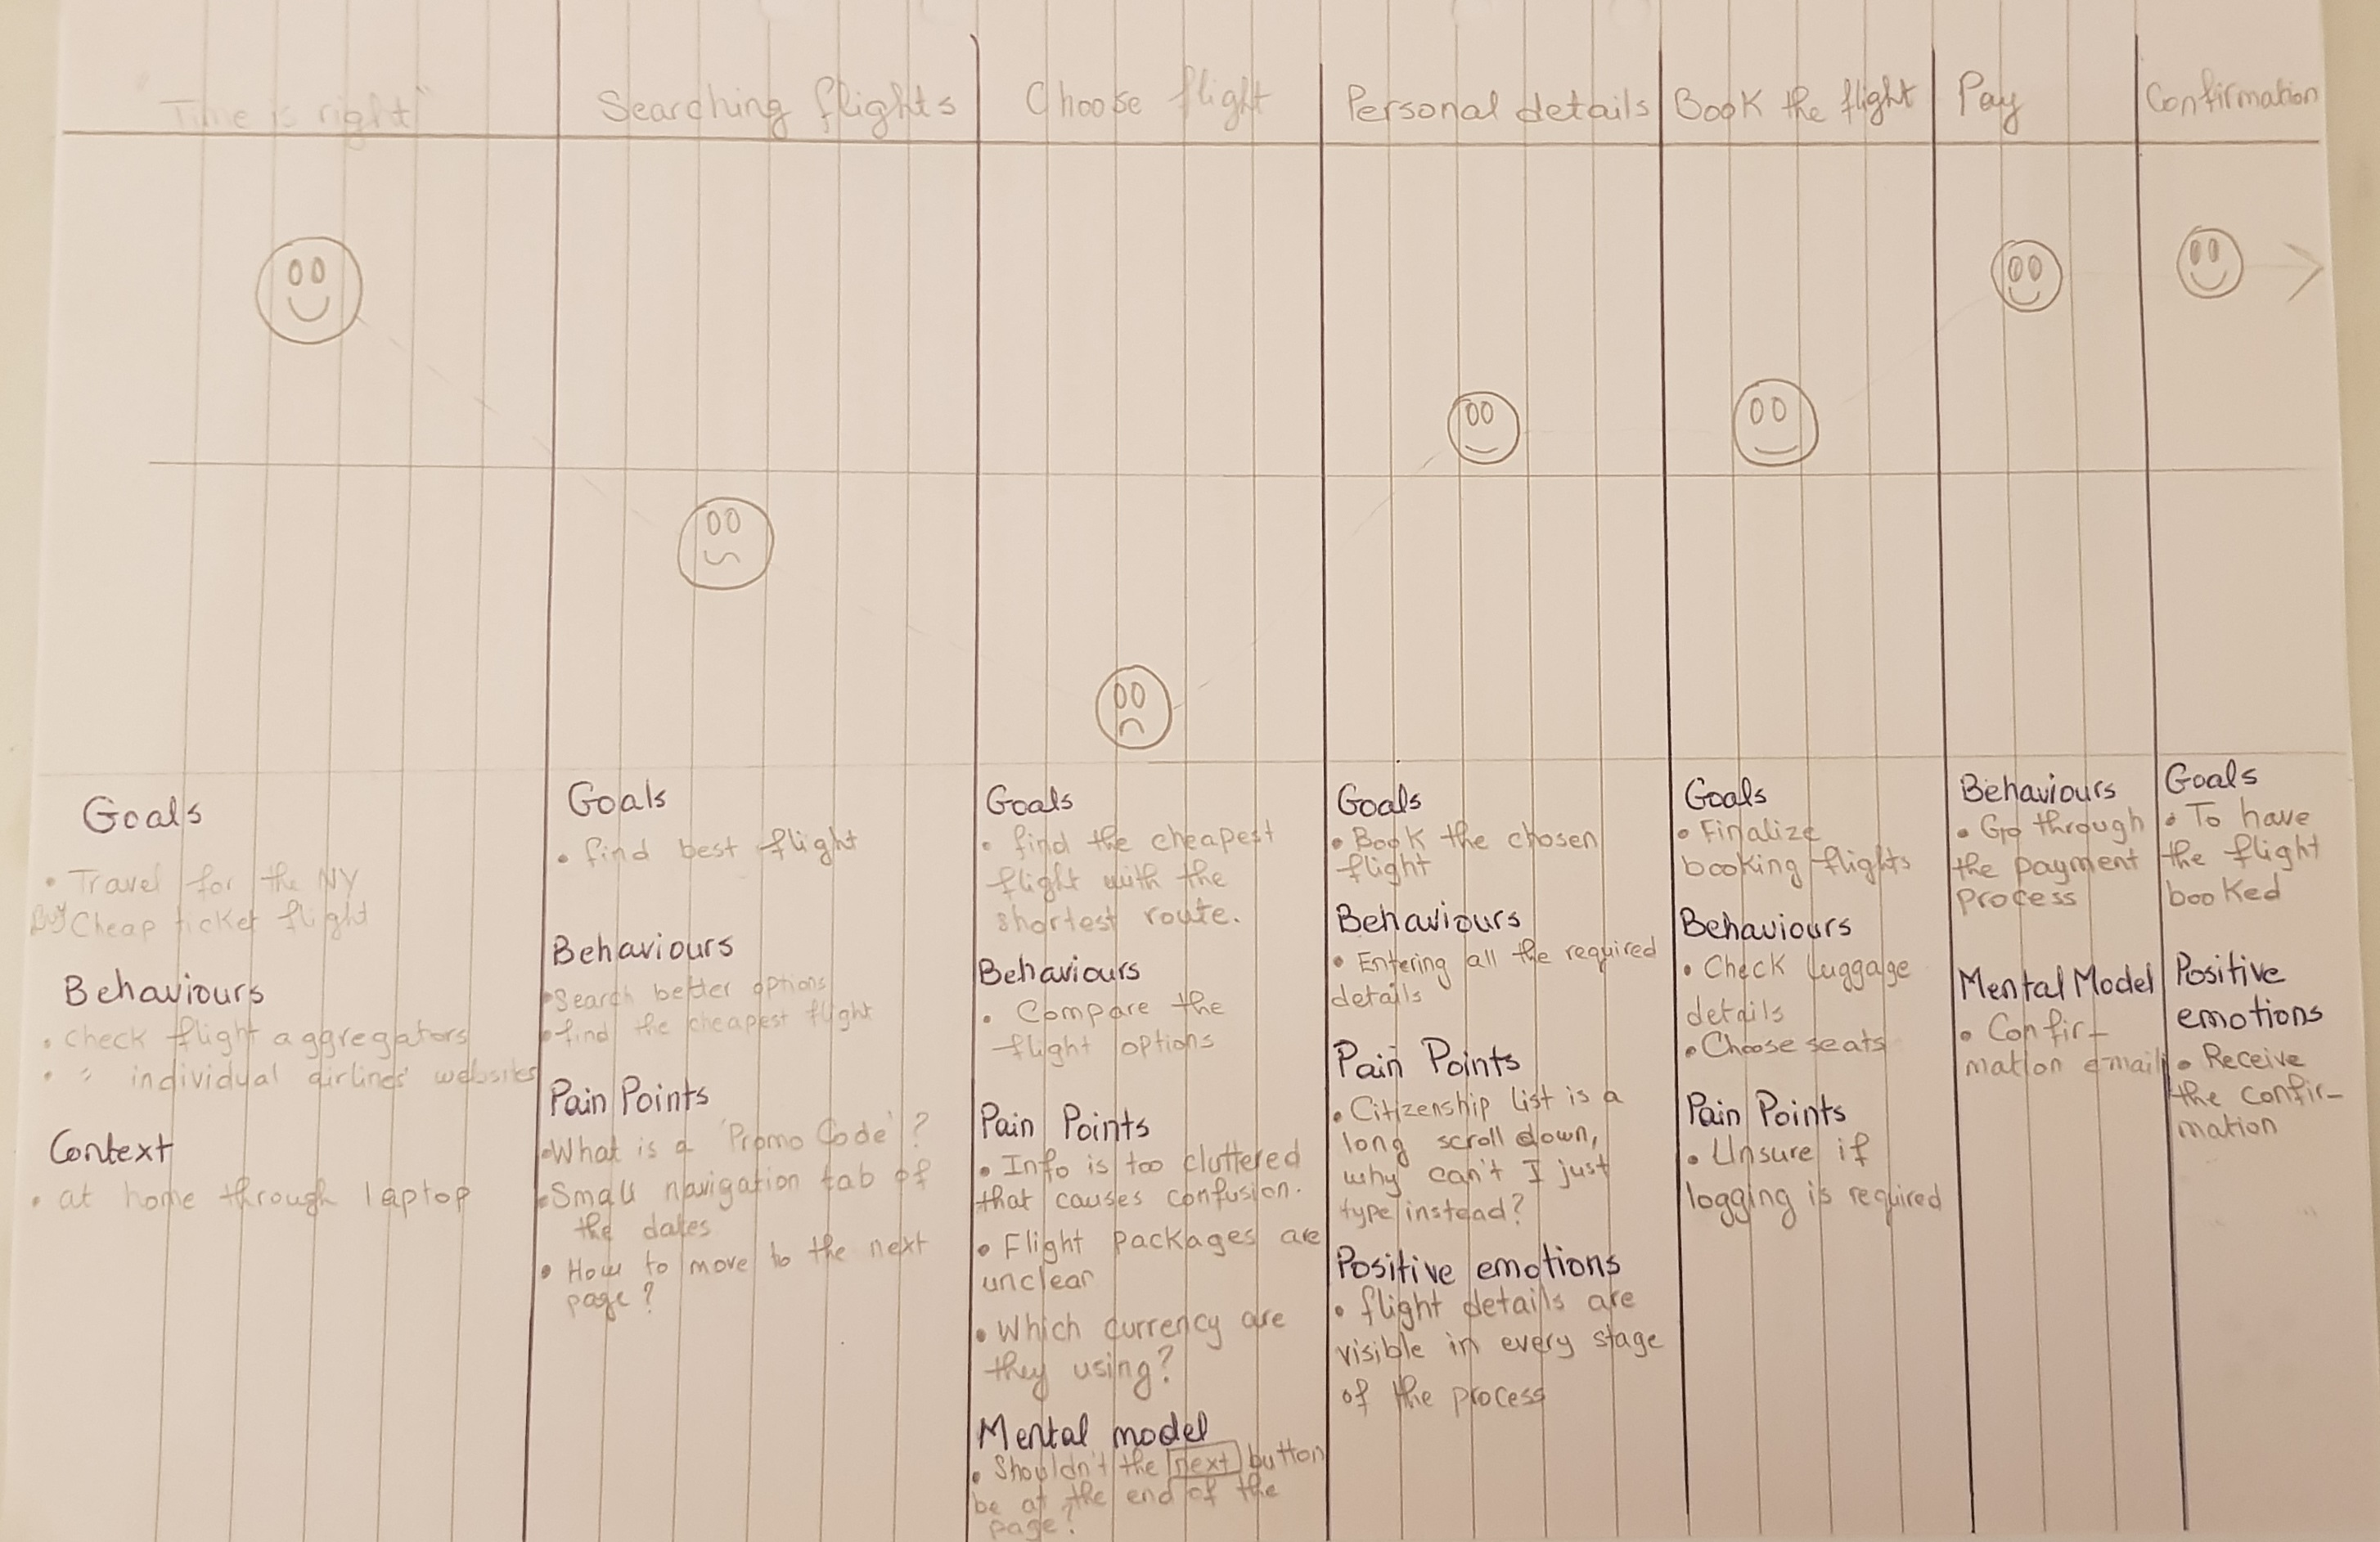 "Time is right"
Searching flights
Choose flight
Personal details
Book the flight
Pay
Confirmation
Goals
• Travel for the NY
Buy Cheap ticket flight
Behaviours
• check flight aggregators
• " individual airlines' websites
Context
• at home through laptop
Goals
• find best flight
Behaviours
• Search better options
• find the cheapest flight
Pain Points
• What is a 'Promo Code'?
• Small navigation tab of
the dates
• How to move to the next
page?
Goals
• find the cheapest
flight with the
shortest route.
Behaviours
• Compare the
flight options
Pain Points
• Info is too cluttered
that causes confusion.
• Flight packages are
unclear
• Which currency are
they using?
Mental model
• Shouldn't the next button
be at the end of the
page?
Goals
• Book the chosen
flight
Behaviours
• Entering all the required
details
Pain Points
• Citizenship list is a
long scroll down,
why can't I just
type instead?
Positive emotions
• flight details are
visible in every stage
of the process
Goals
• Finalize
booking flights
Behaviours
• Check luggage
details
• Choose seats
Pain Points
• Unsure if
logging is required
Behaviours
• Go through
the payment
process
Mental Model
• Confir-
mation email
Goals
• To have
the flight
booked
Positive
emotions
• Receive
the confir-
mation